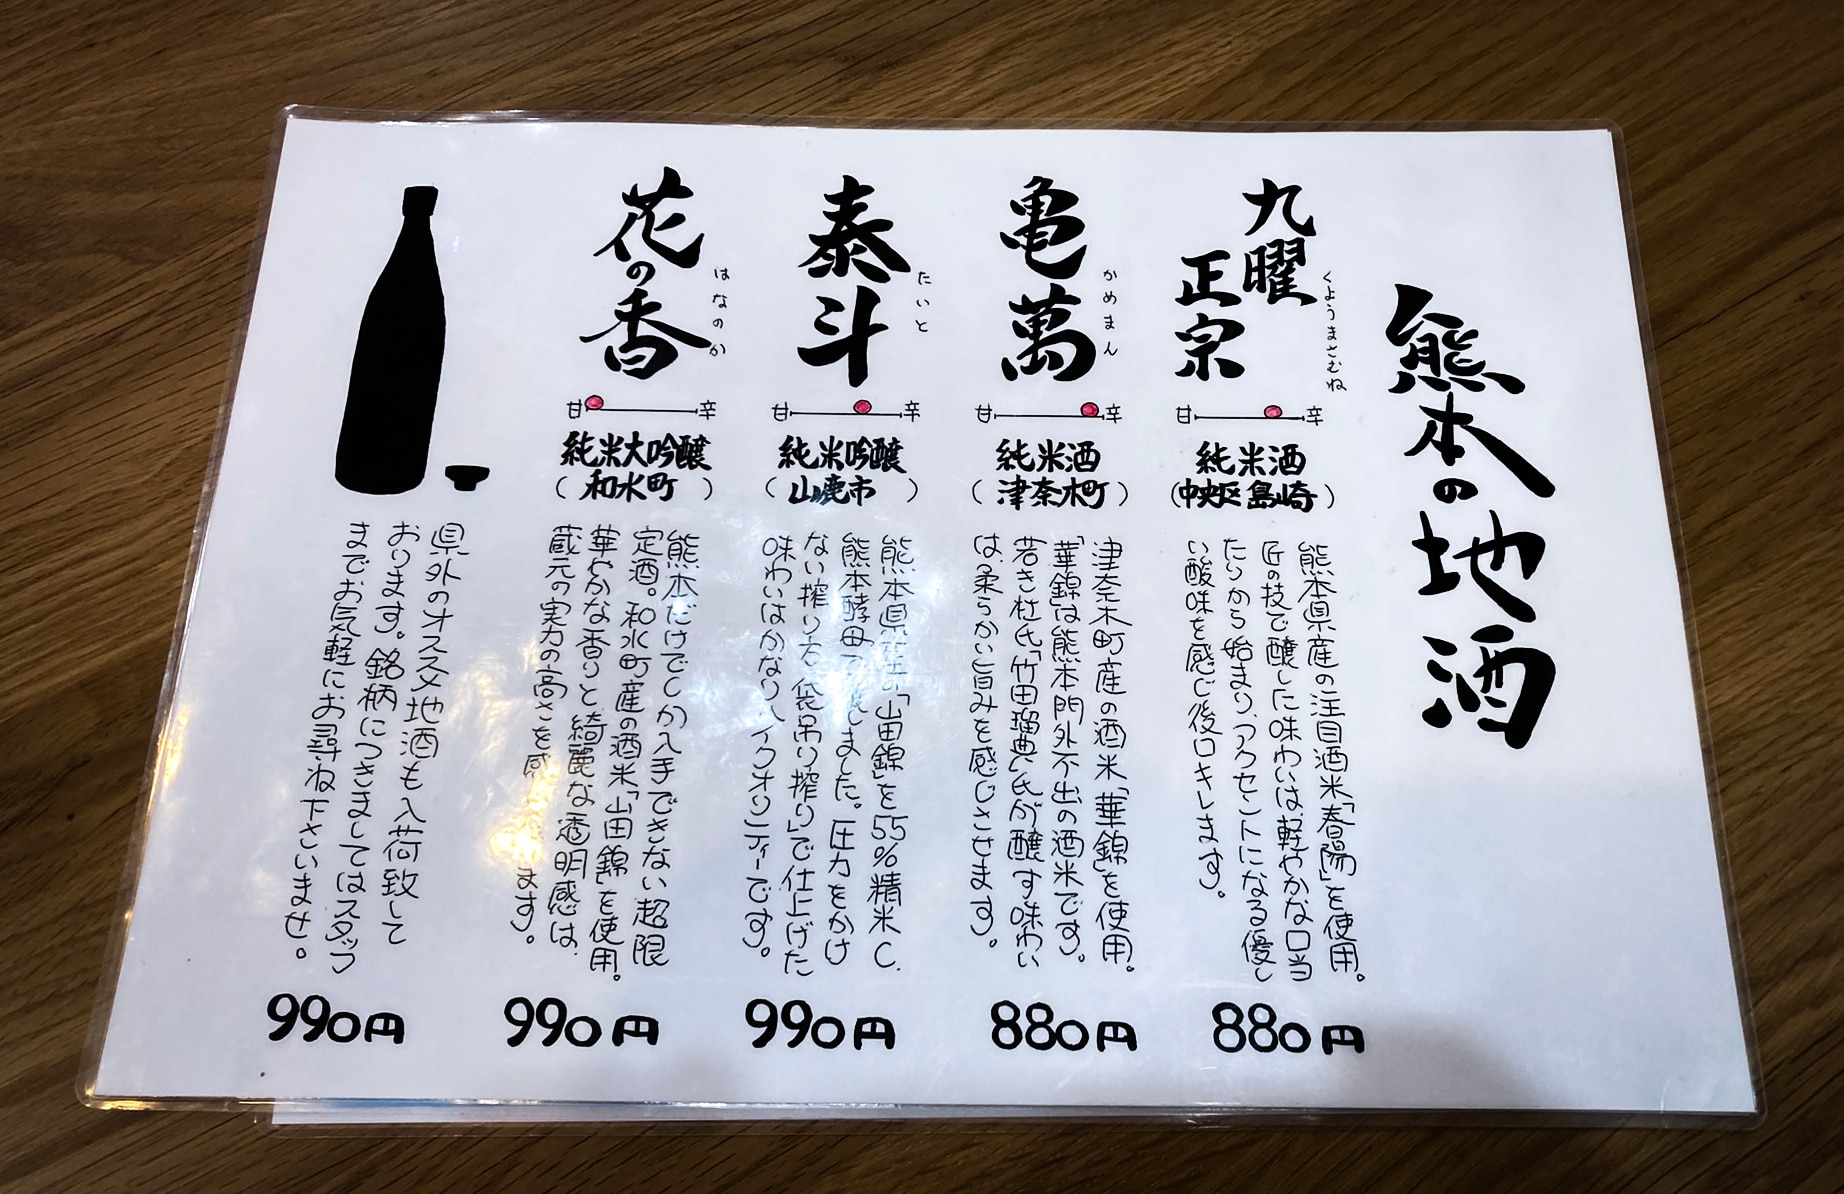 熊本の地酒
九曜
正宗
くようまさむね
甘 辛
純米酒
(中央区島崎)
熊本県産の注目酒米「春陽」を使用。
匠の技で醸した味わいは軽やかな口当
たりから始まり、アクセントになる優し
い酸味を感じ後口キレます。
880円
亀萬
かめまん
甘 辛
純米酒
(津奈木町)
津奈木町産の酒米「華錦」を使用。
「華錦」は熊本門外不出の酒米です。
若き杜氏「竹田瑠典」氏が醸す味わい
は、柔らかい旨みを感じさせます。
880円
泰斗
たいと
甘 辛
純米吟醸
(山鹿市)
熊本県産の「山田錦」を55%精米し、
熊本酵母で しました。圧力をかけ
ない搾り方「袋吊り搾り」で仕上げた
味わいはかなりハイクオリティーです。
990円
花の香
はなのか
甘 辛
純米大吟醸
(和水町)
熊本だけでしか入手できない超限
定酒。和水町産の酒米「山田錦」を使用。
華やかな香りと綺麗な透明感は、
蔵元の実力の高さを感 ます。
990円
県外のオススメ地酒も入荷致して
おります。銘柄につきましてはスタッフ
までお気軽にお尋ね下さいませ。
990円